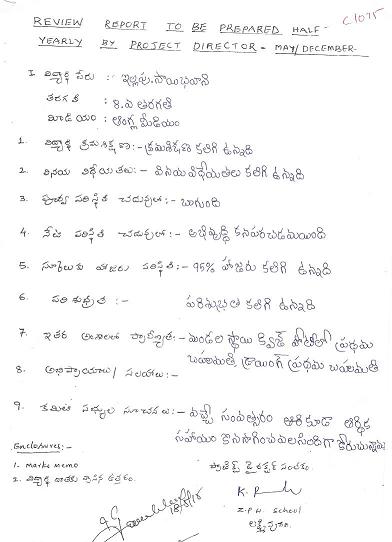 REVIEW REPORT TO BE PREPARED HALF-
YEARLY BY PROJECT DIRECTOR - MAY/DECEMBER-
C1075
I. విద్యార్థి పేరు :- ఇల్లపు. సాయిభవాని
తరగతి : 8. వ తరగతి
మీడియం : ఆంగ్ల మీడియం
1. విద్యార్థి క్రమశిక్షణ :- క్రమశిక్షణ కలిగి ఉన్నది
2. వినయ విధేయతలు :- వినయవిధేయతలు కలిగి ఉన్నది
3. పూర్వ పరిస్థితి చదువులో :- బాగుంది
4. నేటి పరిస్థితి చదువులో :- అభివృద్ధి కనపరచడమయింది
5. స్కూలుకు హాజరు పరిస్థితి :- 95% హాజరు కలిగి ఉన్నది
6. పరిశుభ్రత :- పరిశుభ్రత కలిగి ఉన్నది
7. ఇతర అంశాలలో ప్రావీణ్యత :- మండల స్థాయి క్విజ్ పోటీలో ప్రథమ
బహుమతి డ్రాయింగ్ ప్రథమ బహుమతి
8. అభిప్రాయాలు/ సలహాలు :-
9. కమిటీ సభ్యుల సూచనలు :- వచ్చే సంవత్సరం ఆర్థిక
సహాయం కొనసాగించవలసిందిగా కోరుచున్నాను
Enclosures :-
1. marks memo
2. విద్యార్థి
ప్రాజెక్ట్ డైరెక్టర్ సంతకం.
Z.P.H. School
లక్ష్మీపురం.